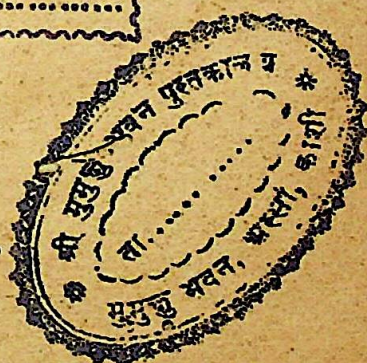 * श्री मुमुक्षु भवन पुस्तकालय *
ता..............
मुमुक्षु भवन, अस्सी, काशी